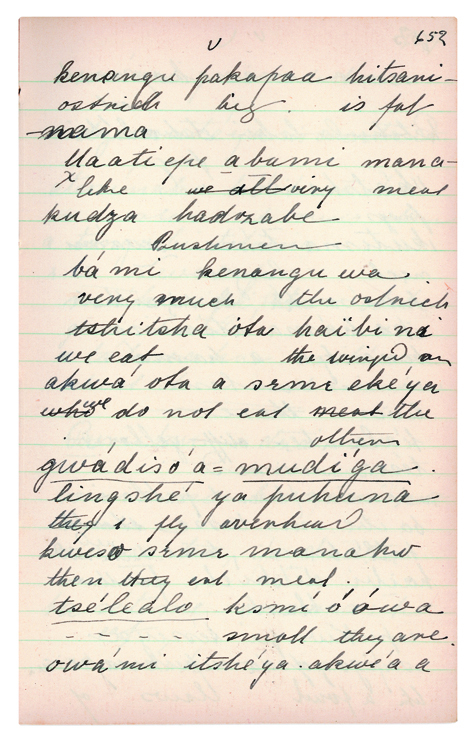 652
kenangu pakapaa hitsani-
ostrich big. is fat
nama
Uaati epe abami mana-
x like we all very meat
kudza hadzabe
Bushmen
bá mi kenangu wa
very much the ostrich
tshitsha óta haïbi ni
we eat the winged on
akwá óta a seme ekéya
who we do not eat meat the
others
gwádisó'a = mudíga.
lingshé ya puhuna
they i fly overhead
kweso seme manako
then they eat meat.
tsélealo ksmí'ó'ówa
- - - - - small they are.
owá mi itshéya. akwéa a